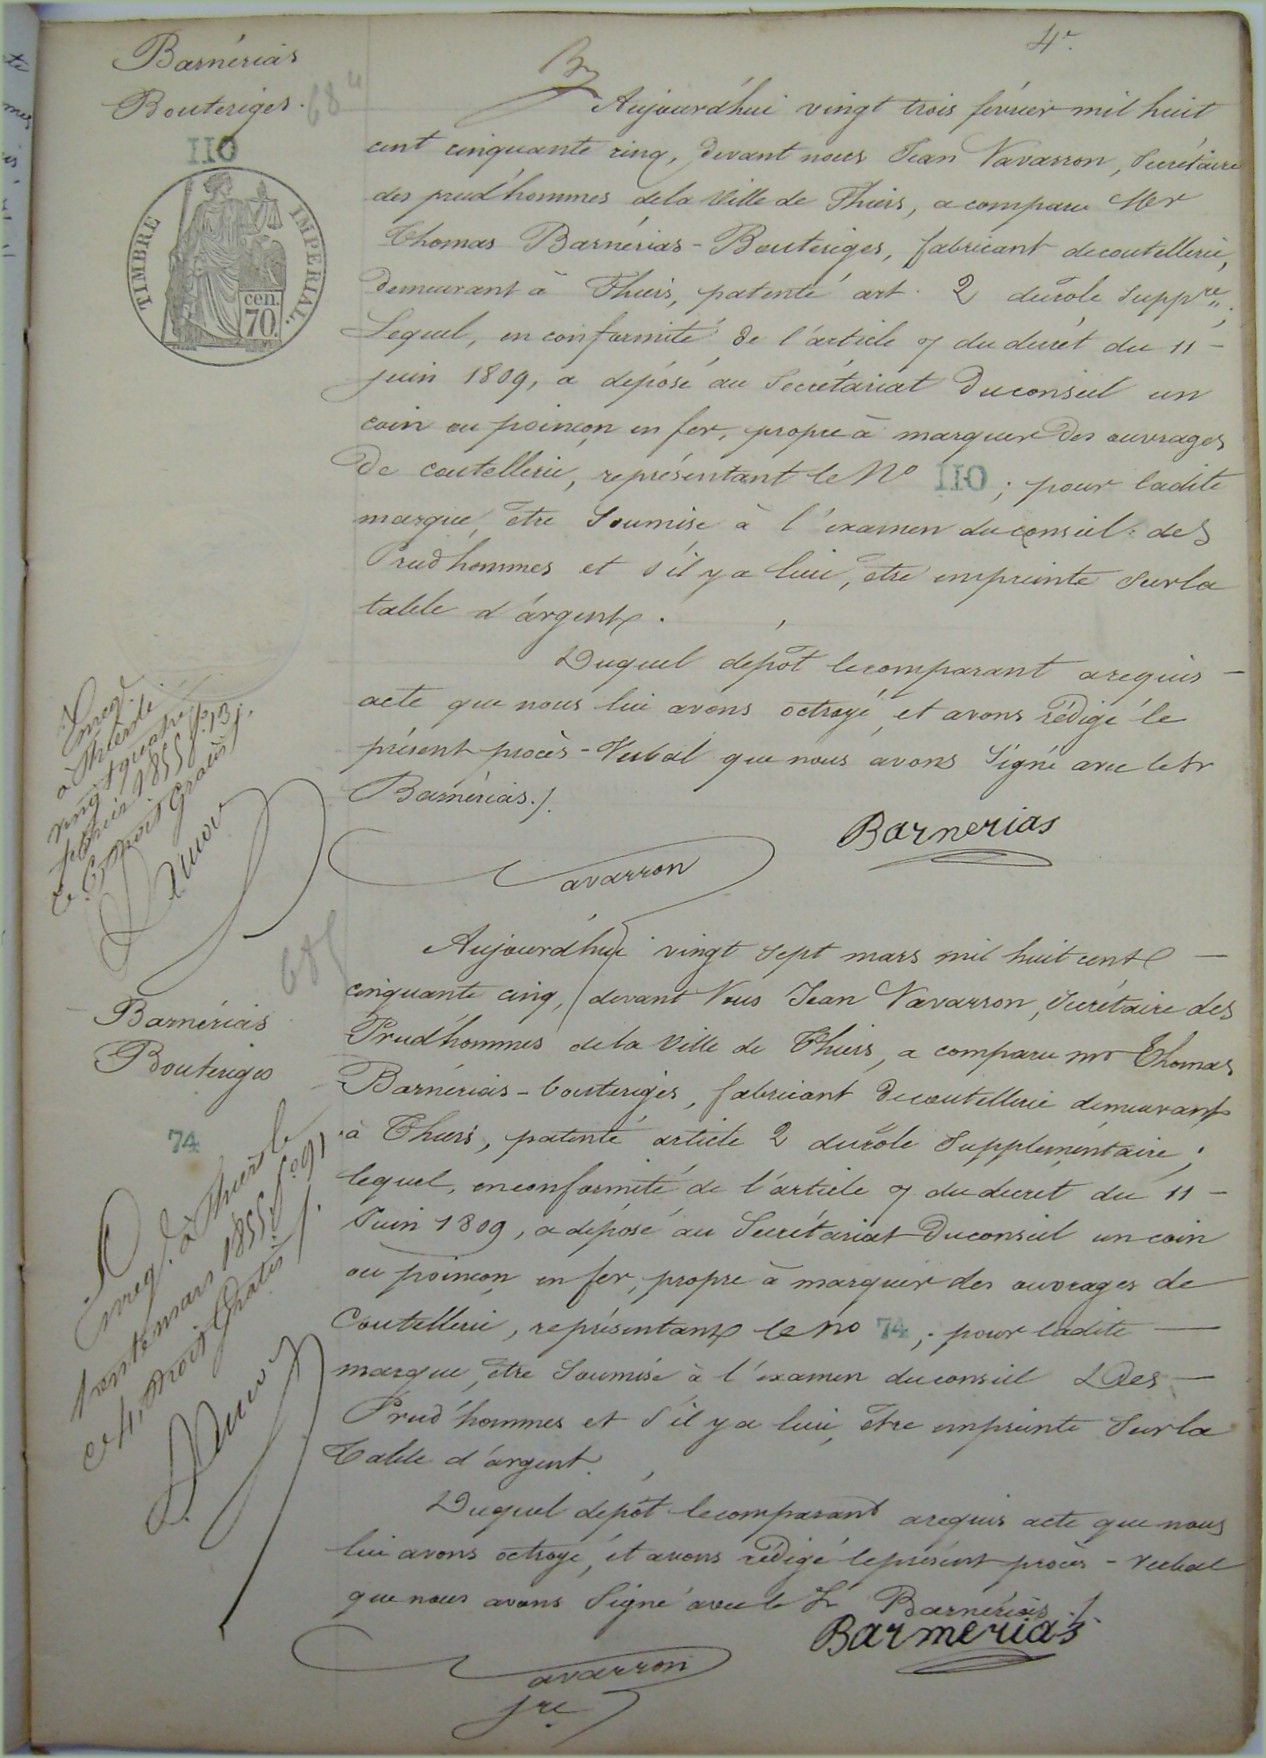 4r.
Barnérias
Bouteriges.
684
110
TIMBRE IMPERIAL.
cen.
70.
Aujourd'hui vingt trois février mil huit
cent cinquante cinq, devant nous Jean Navarron, Secrétaire
des prud'hommes de la Ville de Thiers, a comparu Mr
Thomas Barnérias-Bouteriges, fabricant de coutellerie,
demeurant à Thiers, patenté art. 2 du rôle Suppre;
Lequel, en conformité de l'article 7 du décret du 11 -
juin 1809, a déposé au Secrétariat Du conseil un
coin ou poinçon en fer, propre à marquer Des ouvrages
De coutellerie, représentant le No 110 ; pour ladite
marque, être Soumise à l'examen du conseil des
Prud'hommes et s'il y a lieu, être empreinte Sur la
table d'argent.
Duquel dépôt le comparant a requis -
acte que nous lui avons octroyé, et avons rédigé le
présent procès-Verbal que nous avons Signé avec le Sr
Barnérias./.
Barnerias
Navarron
Enreg.
à Thiers le
vingt quatre
février 1855 f.
Ct. Droit Gratis
685
Barnérias
Bouteriges
74
Aujourd'hui vingt Sept mars mil huit cent -
cinquante cinq, devant Nous Jean Navarron, Secrétaire des
Prud'hommes de la Ville de Thiers, a comparu mr Thomas
Barnérias-bouteriges, fabricant De coutellerie demeurant
à Thiers, patenté article 2 du rôle Supplémentaire ;
lequel, en conformité de l'article 7 du decret du 11 -
Juin 1809, a déposé au Secrétariat Du conseil un coin
ou poinçon en fer, propre à marquer des ouvrages de
Coutellerie, représentant le No 74 ; pour ladite -
marque, être Soumise à l'examen du conseil Des -
Prud'hommes et S'il y a lieu, être empreinte Sur la
Table d'argent.
Duquel dépôt le comparant a requis acte que nous
lui avons octroyé, et avons rédigé le présent procès-verbal
que nous avons Signé avec le Sr Barnérias./.
Barnerias
Navarron
Sre
Enreg. à Thiers le
trente mars 1855, fo 91
Ct. Droit Gratis